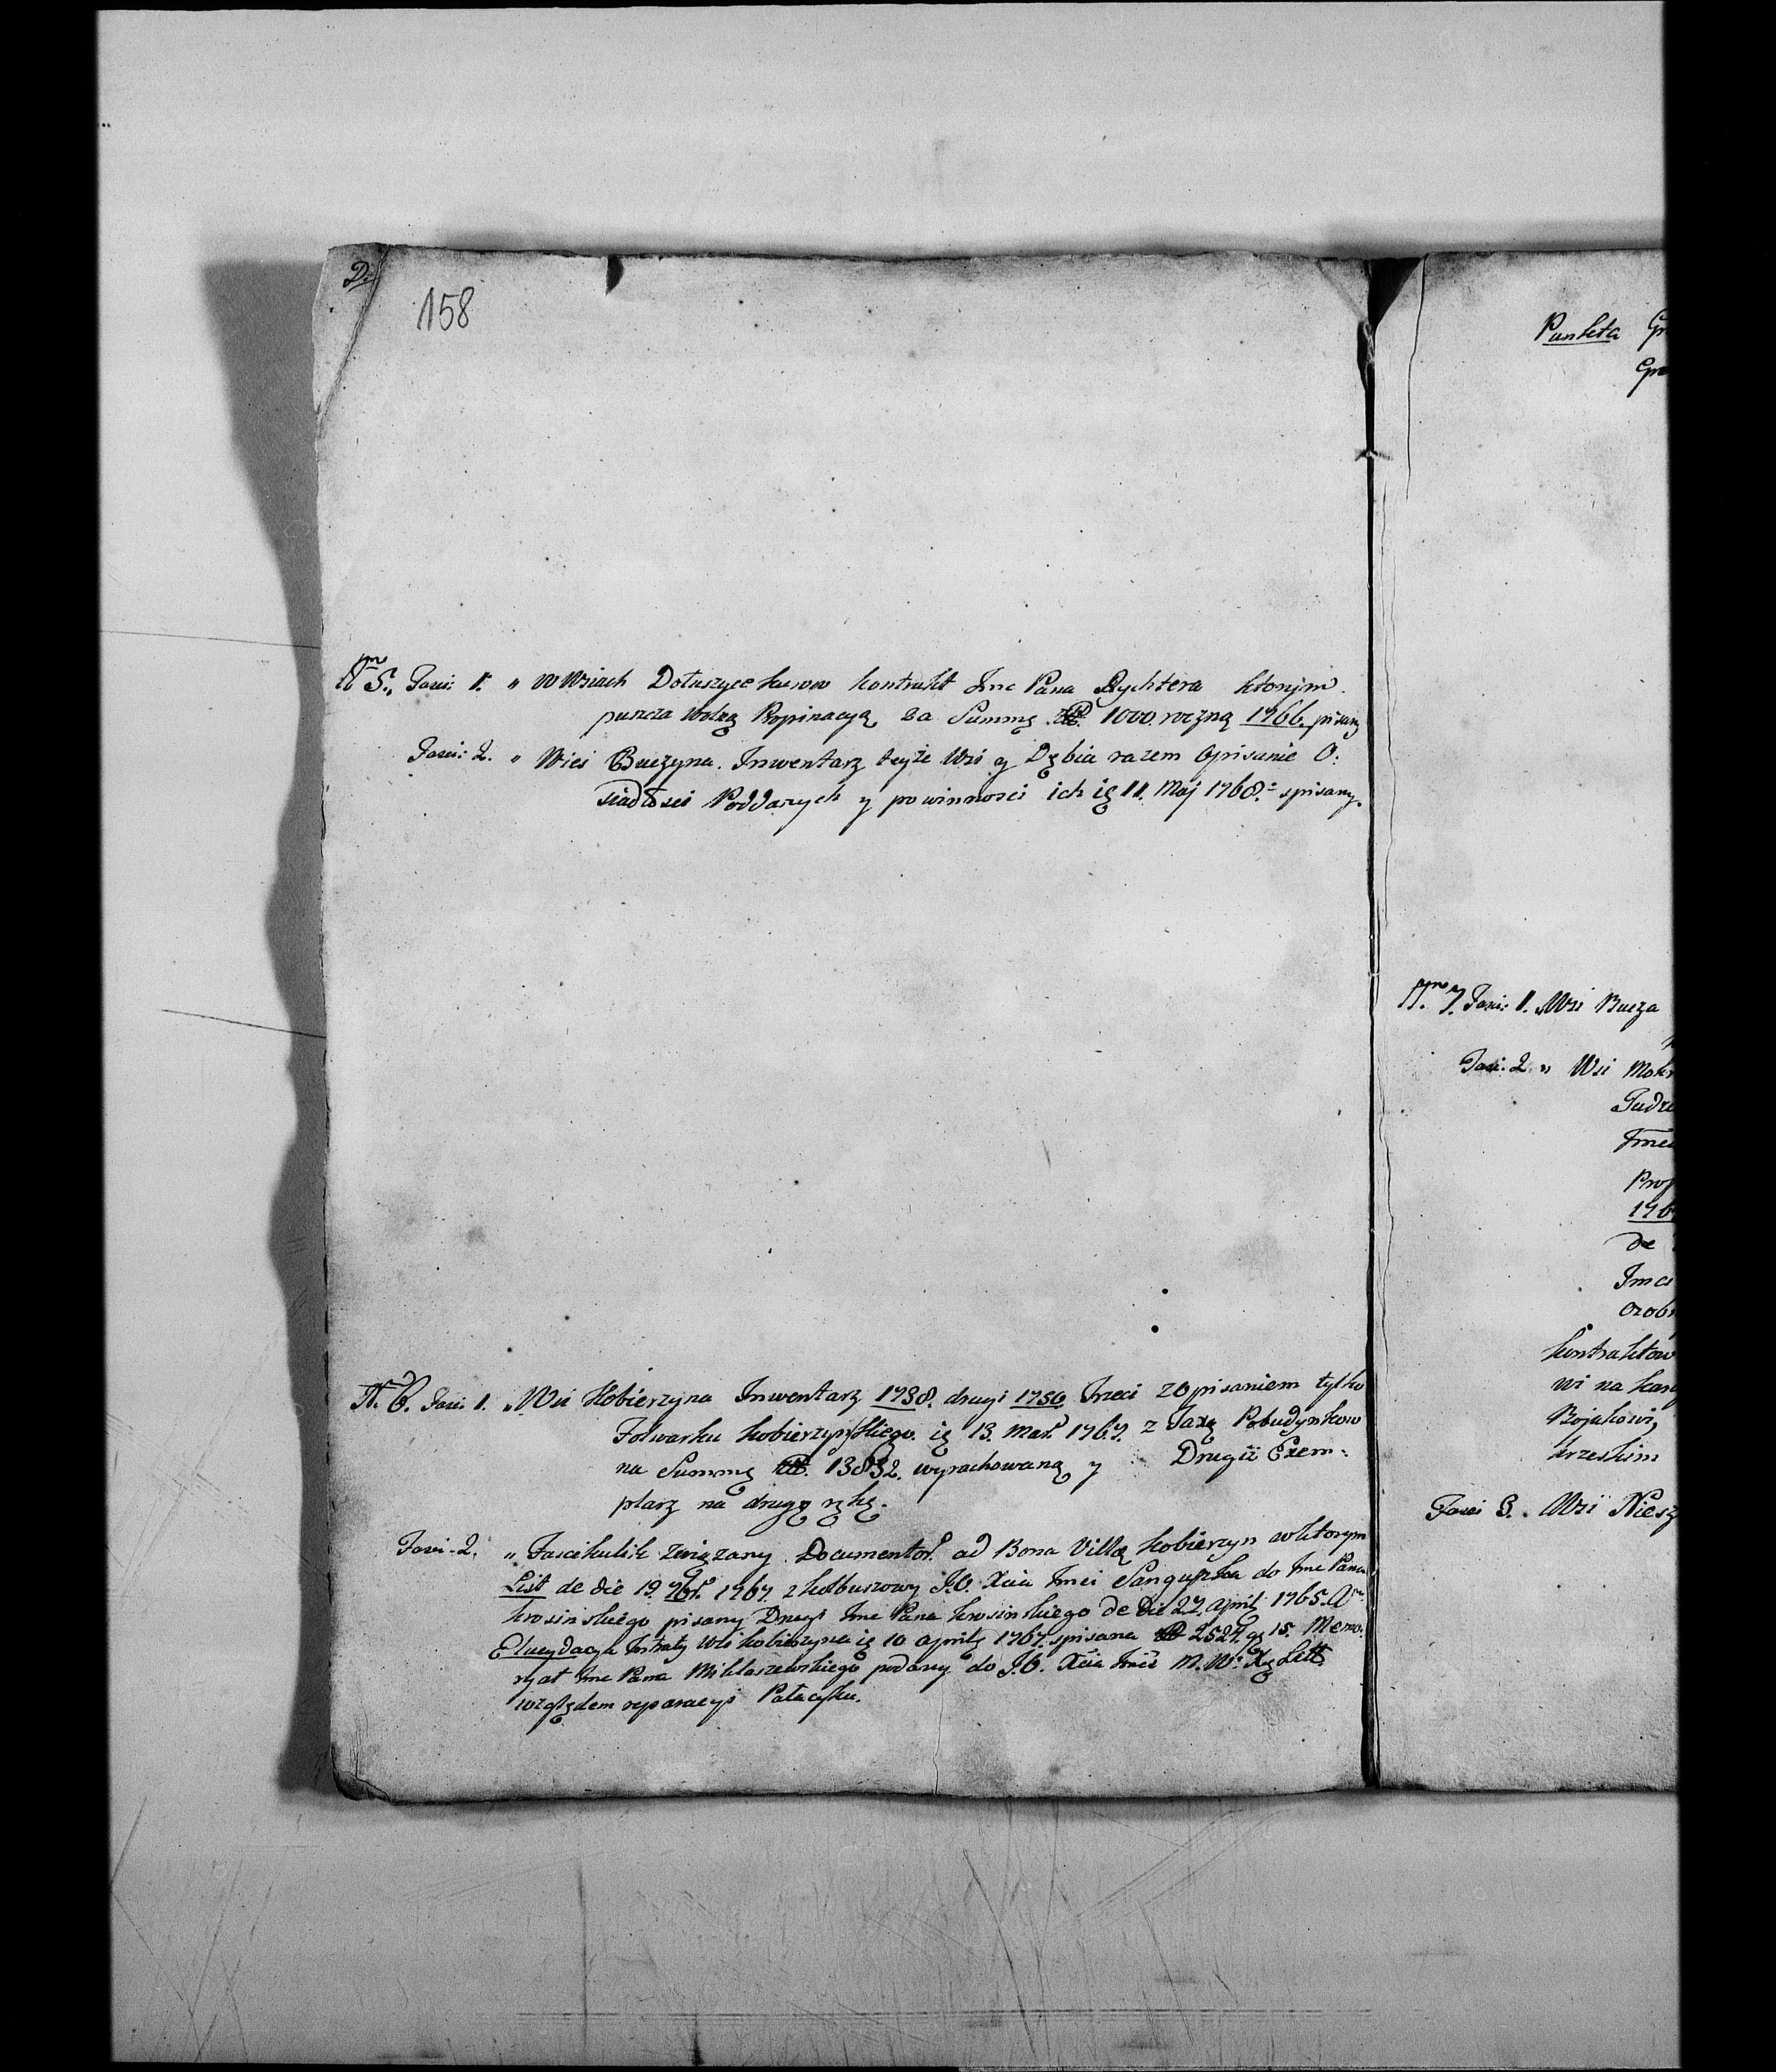 D.
158
Nro 5. Fasci: 1. " W Wsiach Kontrakt Imc Pana Rychtera ktorym
puszcza wolną Propinacyą za Summę 1000. roczną 1766. pisany
Fasci: 2. " Wieś Buczyna. Inwentarz teyże Wsi y Dębia razem Opisanie O:
siadłosci Poddanych y powinnosci ich ię 11. Maj 1768. spisany.
N. 6. Fasci. 1. " Wsi Kobierzyna Inwentarz 1738. drugi 1750. Trzeci z Opisaniem tylko
Folwarku Kobierzynskiego ię 13. Mar. 1767. z Taxą Pobudynkow
na Summę 13832. wyrachowaną y Drugii Exem:
plarz na drugą rękę.
Fasci. 2. " Fascikulik związany Documentor. ad Bona Villa Kobierzyn w ktorym
List de die 19. 7br. 1767. z Kolbuszowy J.O. Xcia Imci Sanguszka do Imc Pana
Krosinskiego pisany Drugi Imc Pana Krosinskiego de Die 27. Aprilis 1765. A
Elucydacya Intraty Wsi Kobierzyna ię 10 Aprilis 1767. spisana 2527. g 15. Memo:
ryał Imc Pana Miklaszewskiego podany do J.O. Xcia Imci M. W. X. Litt.
względem reparacyi Pałacyku.
Punkta
Nro 7. Fasci: 1. " Wsi Bucza
Fasci. 2 " Wsi
de
Imci
Kontraktow
wi na
krzeskim
Fasci 3. Wsi